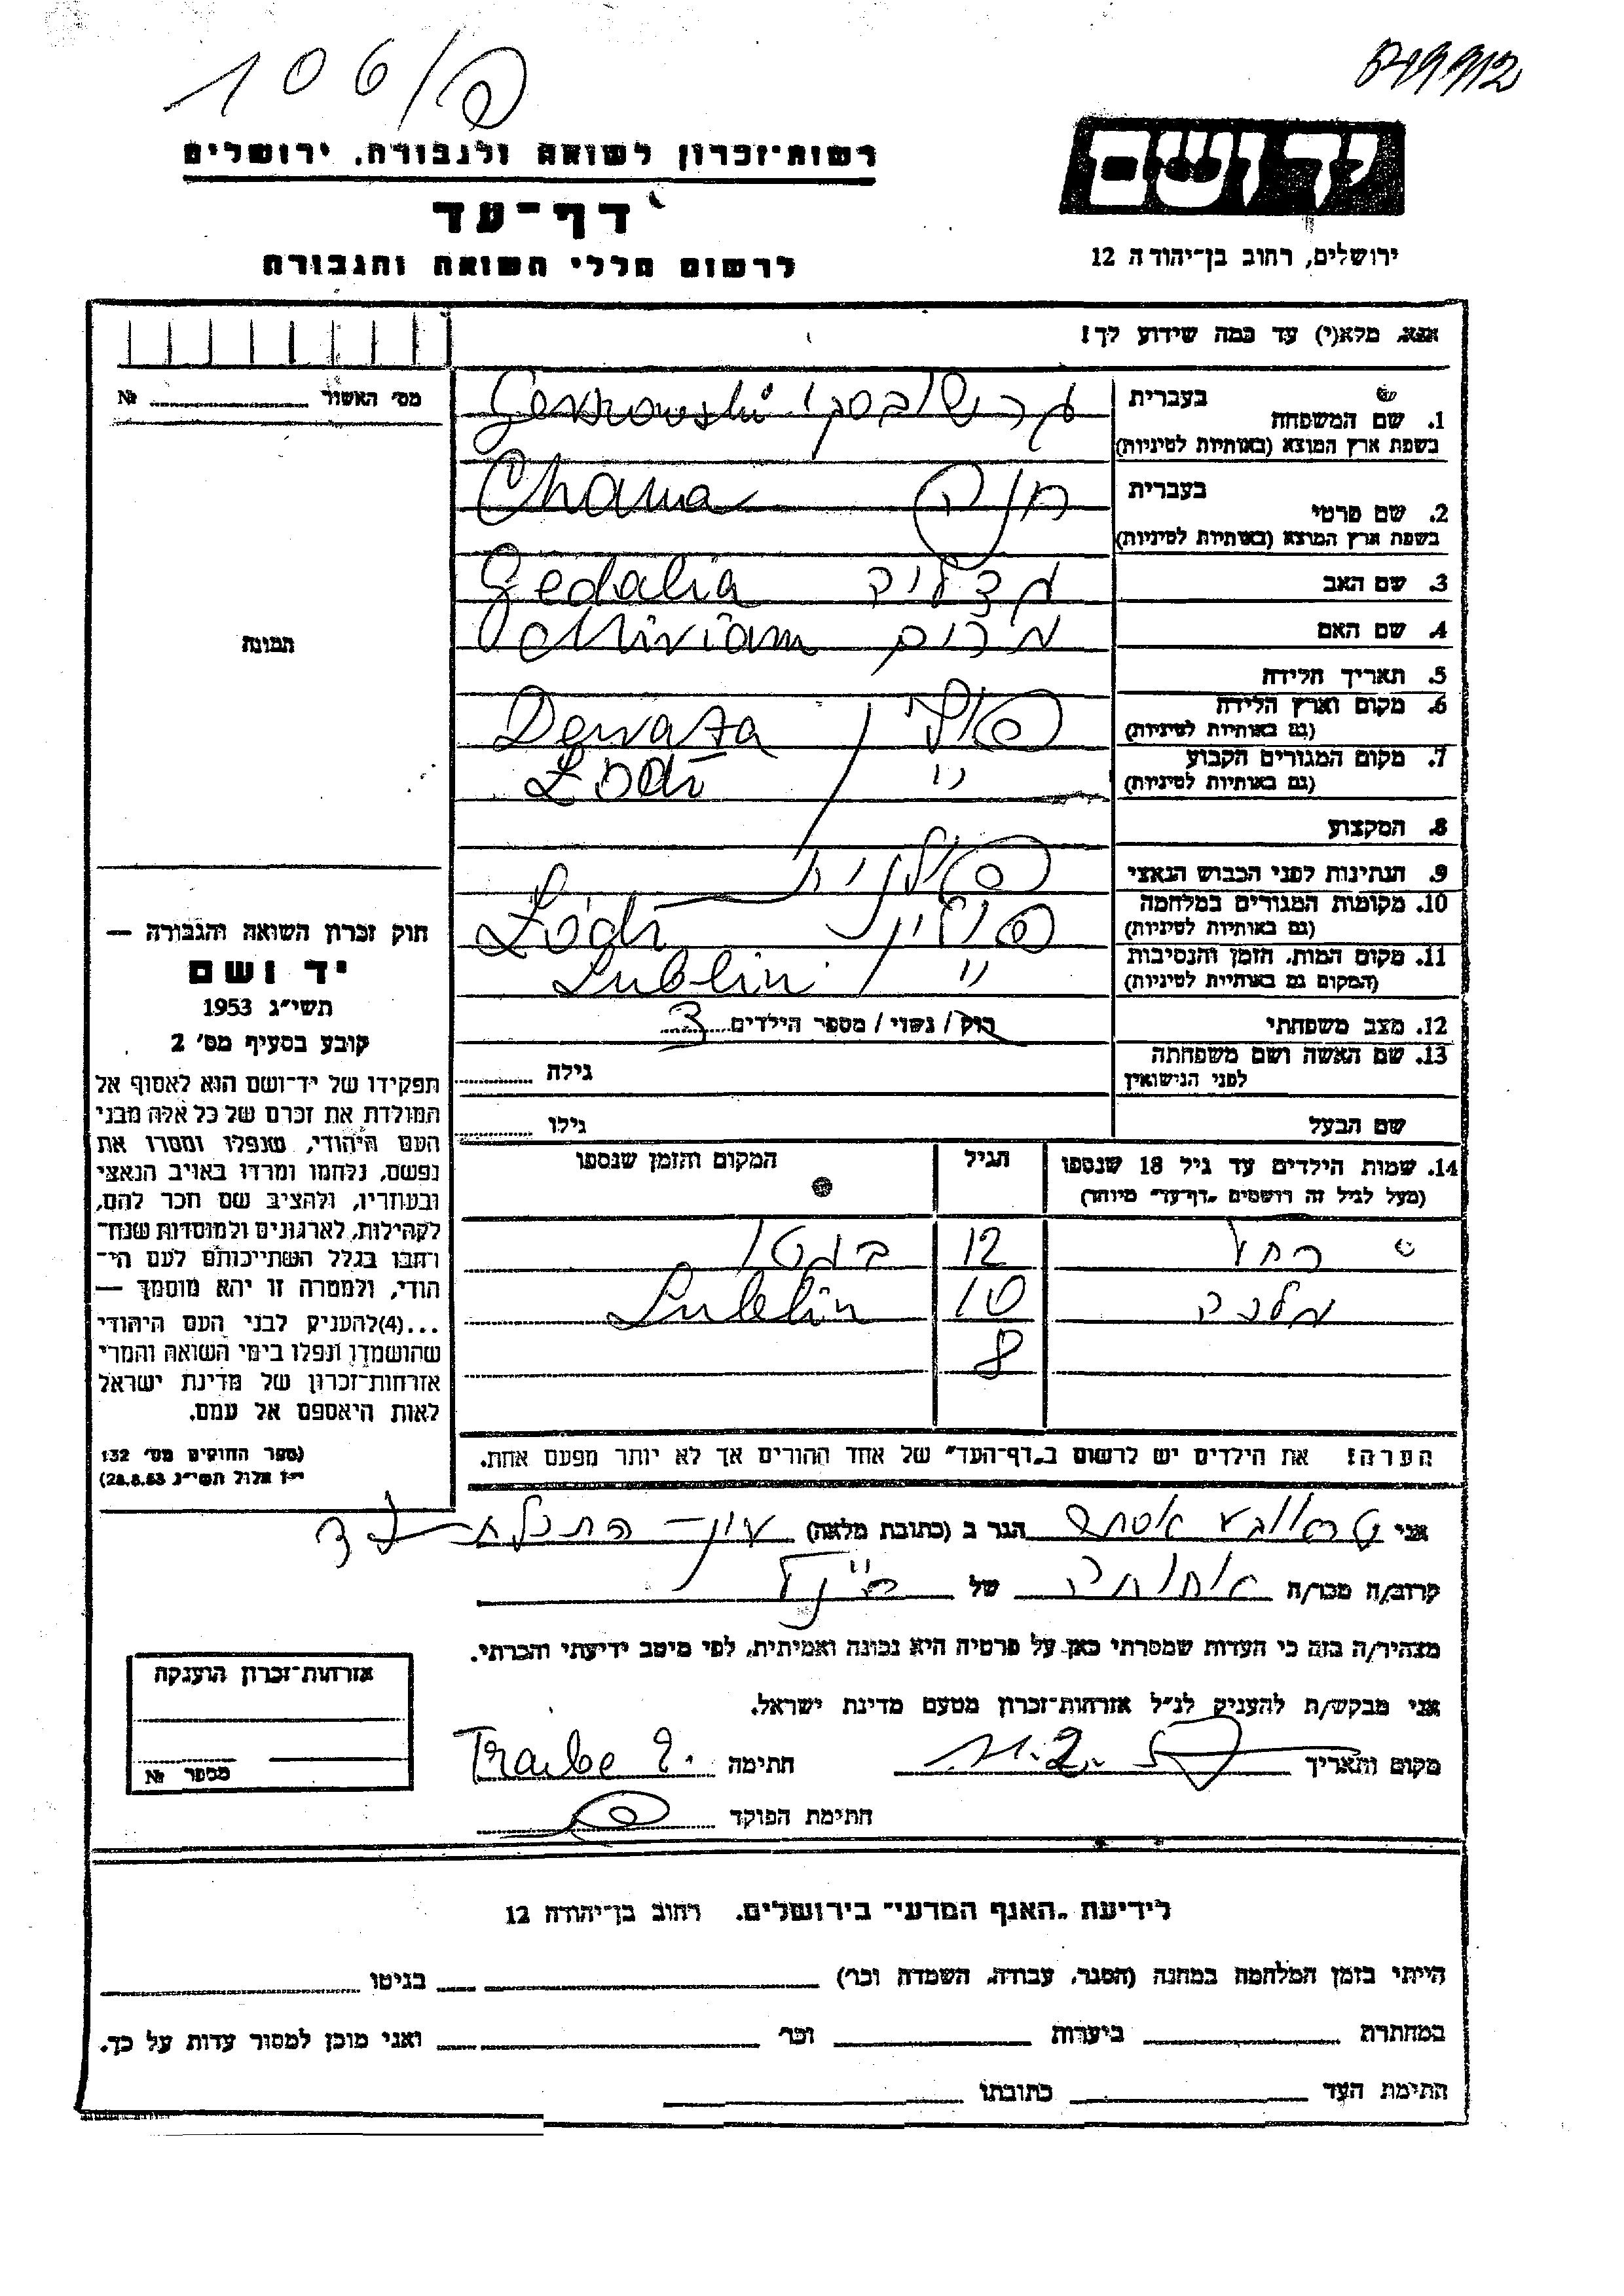 106/פ
יד ושם
רשות-זכרון לשואה ולגבורה, ירושלים
דף-עד
לרשום חללי השואה והגבורה
ירושלים, רחוב בן-יהודה 12
אנא, מלא(י) עד כמה שידוע לך!
מס' האשור № 
1. שם המשפחה
בעברית
בשפת ארץ המוצא (באותיות לטיניות)
2. שם פרטי
בעברית
בשפת ארץ המוצא (באותיות לטיניות)
חנה Chana
3. שם האב גדליה Gedalia
4. שם האם מרים Miriam
5. תאריך הלידה
6. מקום וארץ הלידה
(גם באותיות לטיניות)
פולין
7. מקום המגורים הקבוע
(גם באותיות לטיניות)
" Łódź
8. המקצוע
9. הנתינות לפני הכבוש הנאצי פולנית
10. מקומות המגורים במלחמה
(גם באותיות לטיניות)
פולין Łódź
11. מקום המות, הזמן והנסיבות
(המקום גם באותיות לטיניות)
" Lublin
12. מצב משפחתי רוק/נשוי/מספר הילדים 3
13. שם האשה ושם משפחתה
לפני הנישואין
גילה
שם הבעל גילו
14. שמות הילדים עד גיל 18 שנספו
(מעל לגיל זה רושמים "דף-עד" מיוחד)
הגיל
המקום והזמן שנספו
רחל 12 בגטו
מלכה 10 Lublin
8
הערה! את הילדים יש לרשום ב"דף-העד" של אחד ההורים אך לא יותר מפעם אחת.
תמונה
חוק זכרון השואה והגבורה —
יד ושם
תשי"ג 1953
קובע בסעיף מס' 2
תפקידו של יד-ושם הוא לאסוף אל
המולדת את זכרם של כל אלה מבני
העם היהודי, שנפלו ומסרו את
נפשם, נלחמו ומרדו באויב הנאצי
ובעוזריו, ולהציב שם וזכר להם,
לקהילות, לארגונים ולמוסדות שנח-
רבו בגלל השתייכותם לעם הי-
הודי, ולמטרה זו יהא מוסמך —
...(4) להעניק לבני העם היהודי
שהושמדו ונפלו בימי השואה והמרי
אזרחות-זכרון של מדינת ישראל
לאות היאספם אל עמם.
(ספר החוקים מס' 132
י"ז אלול תשי"ג 28.8.53)
אני טראובע אסתר הגר ב (כתובת מלאה) עין-התכלת
קרוב/ה מכר/ה אחותה של הנ"ל
מצהיר/ה בזה כי העדות שמסרתי כאן על פרטיה היא נכונה ואמיתית, לפי מיטב ידיעתי והכרתי.
אני מבקש/ת להעניק לנ"ל אזרחות-זכרון מטעם מדינת ישראל.
מקום ותאריך חתימה Traube E.
חתימת הפוקד
אזרחות-זכרון הוענקה
מספר №
לידיעת "האגף המדעי" בירושלים. רחוב בן-יהודה 12
הייתי בזמן המלחמה במחנה (הסגר, עבודה, השמדה וכו') בגיטו
במחתרת ביערות וכו' ואני מוכן למסור עדות על כך.
חתימת העד כתובתו